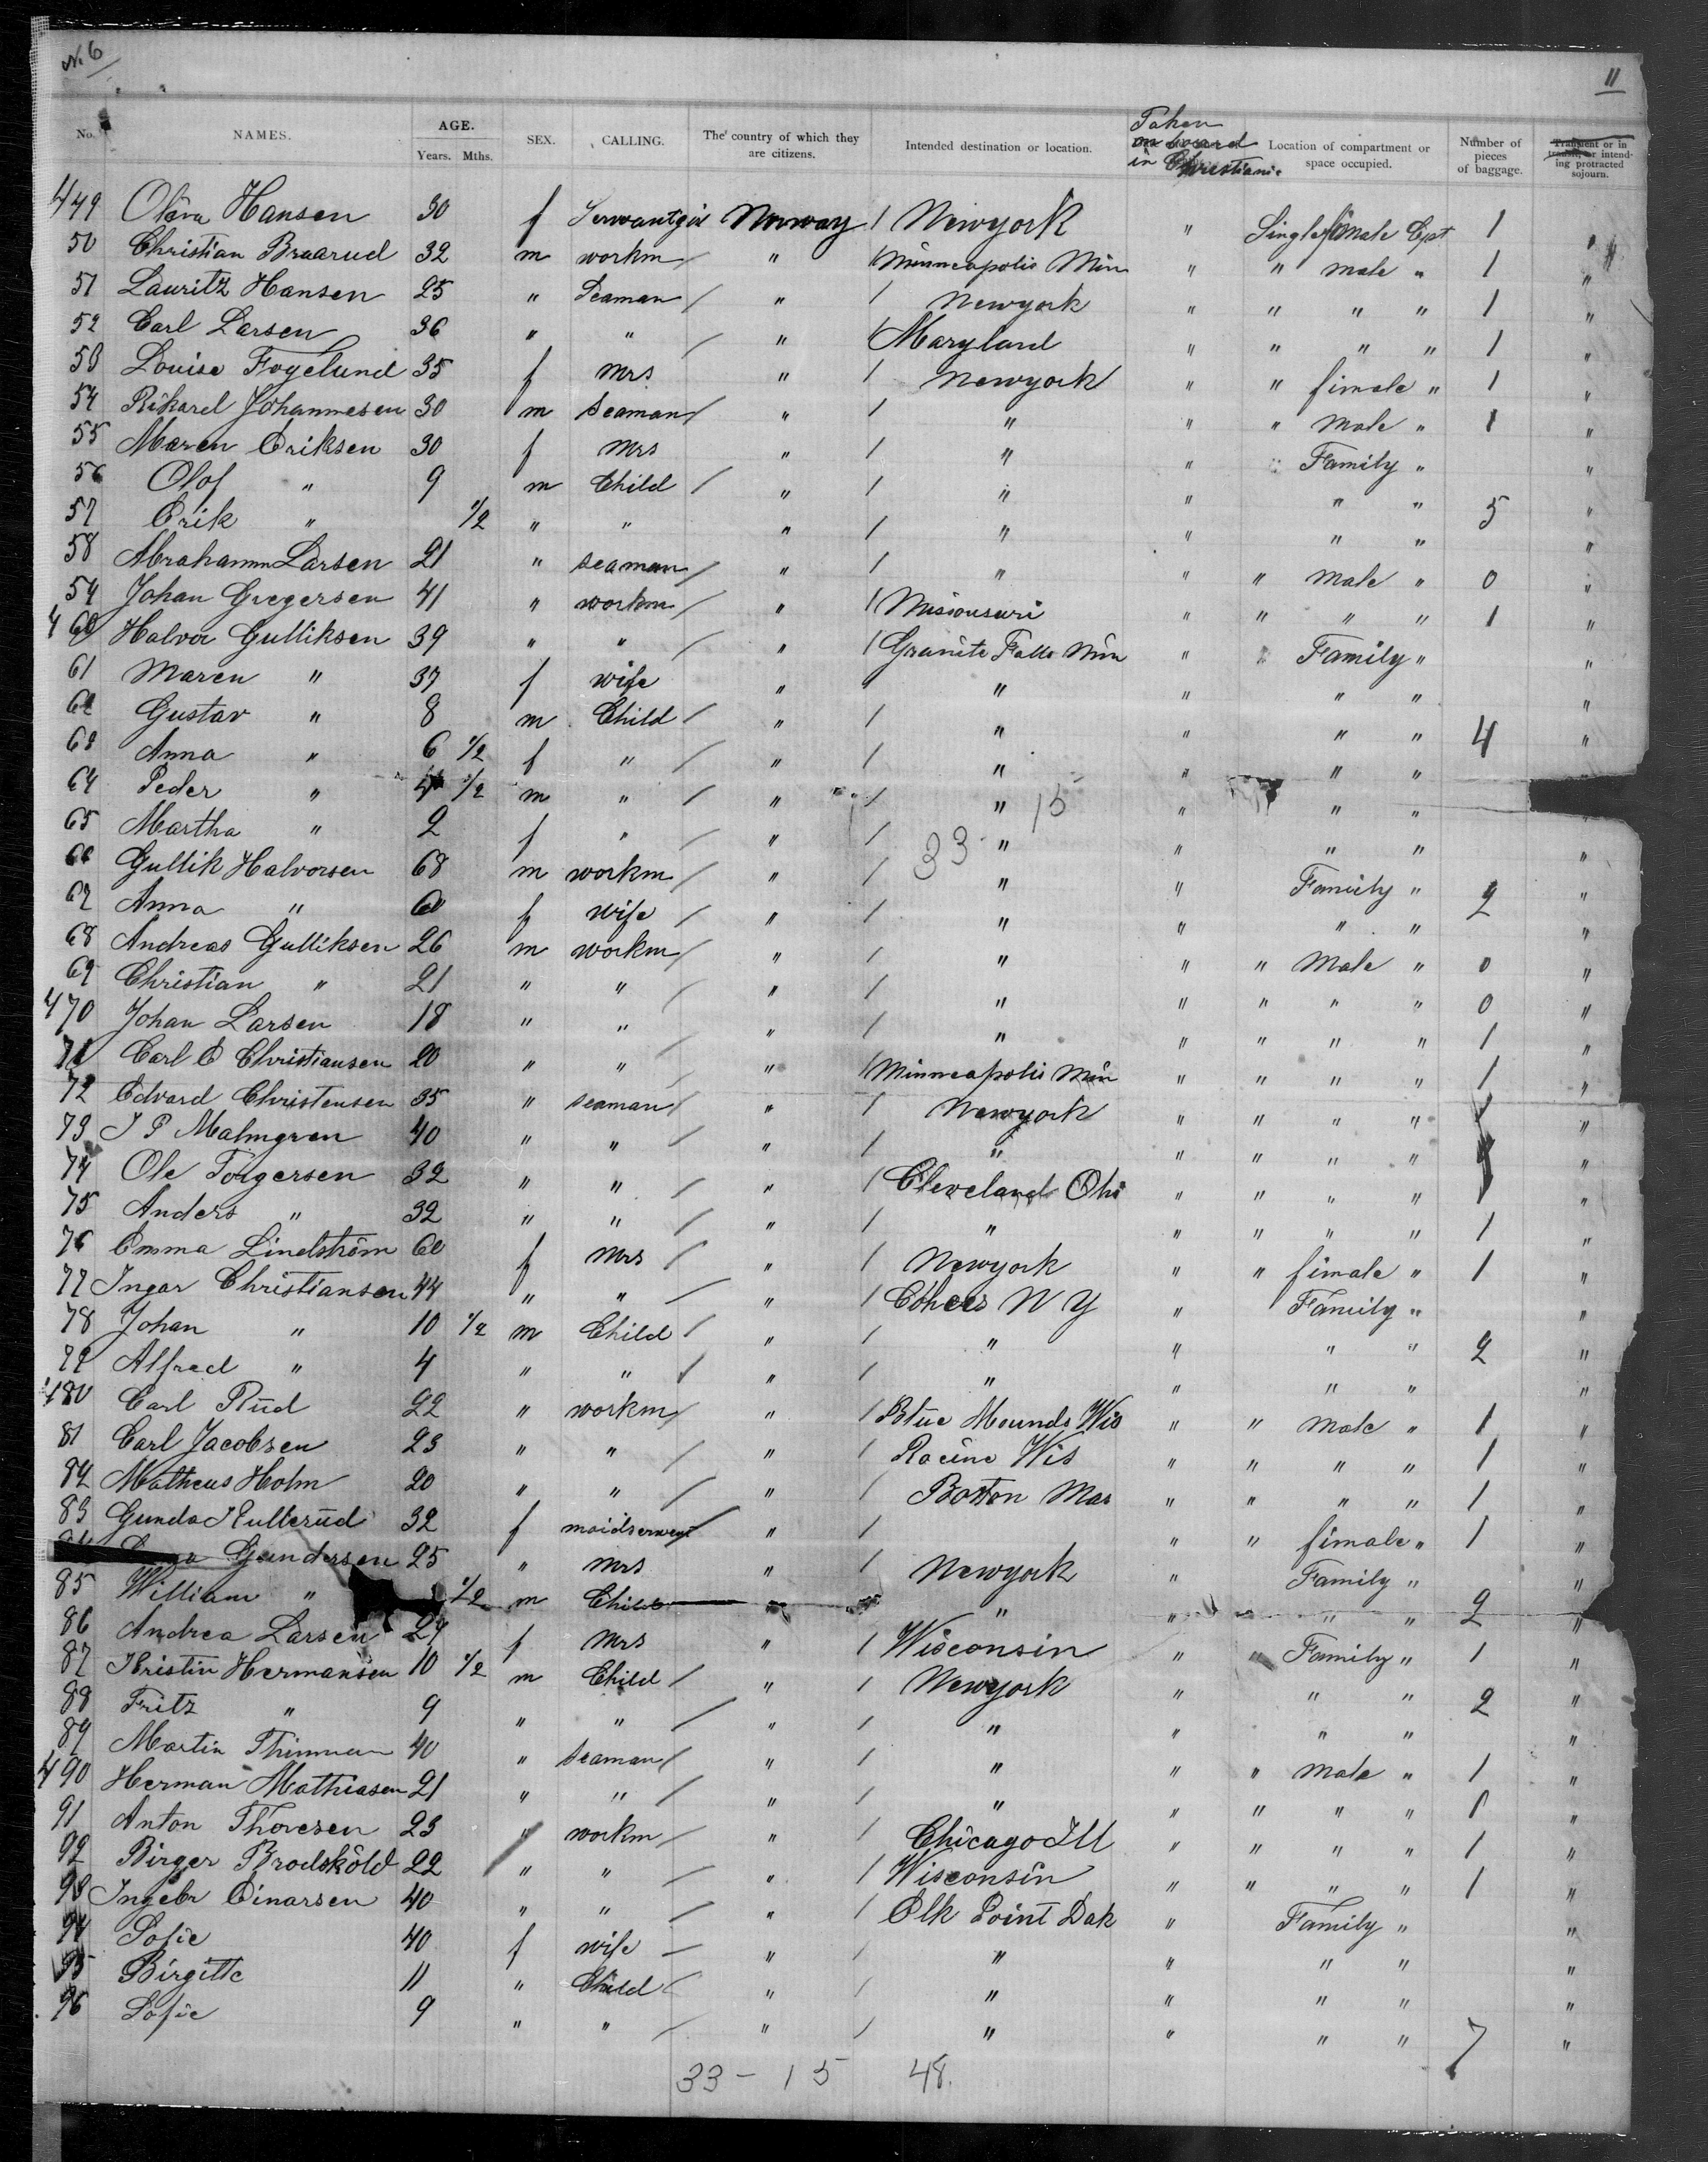 No. 6
11
No. NAMES. AGE. Years. Mths. SEX. CALLING. The country of which they are citizens. Intended destination or location. Taken on board in Christiania Location of compartment or space occupied. Number of pieces of baggage. Transient or in transit, or intending protracted sojourn.
449 Olava Hansen 30 f Servantgirl Norway / Newyork " Single fimale Cpt 1 "
50 Christian Braarud 32 m workm / " / Minneapolis Min " " male " 1 "
51 Lauritz Hansen 25 " Seaman / " / Newyork " " " " 1 "
52 Carl Larsen 36 " " / " / Maryland " " " " 1 "
53 Louise Fogelund 35 f Mrs " / Newyork " " fimale " 1 "
54 Rikard Johannesen 30 m Seaman / " / " " " male " 1 "
55 Maren Eriksen 30 f Mrs " / " " Family " "
56 Olof " 9 m Child / " / " " " " 5 "
57 Erik " 1/2 " " " / " " " " "
58 Abrahamm Larsen 21 " seaman / " / " " " male " 0 "
59 Johan Gregersen 41 " workm / " / Misiousuri " " " " 1 "
460 Halvor Gulliksen 39 " " / " / Granite Falls Min " Family " "
61 Maren " 37 f wife " " " " " "
62 Gustav " 8 m Child / " / " " " " 4 "
63 Anna " 6 1/2 f " / " / " " " " "
64 Peder " 4 1/2 m " / " / " 15 " " "
65 Martha " 2 f " / " / 33 " " " " "
66 Gullik Halvorsen 68 m workm / " / " " Family " 2 "
67 Anna " 60 f wife / " / " " " " "
68 Andreas Gulliksen 26 m workm / " / " " " male " 0 "
69 Christian " 21 " " / " / " " " " " 0 "
470 Johan Larsen 18 " " / " / " " " " " 1 "
71 Carl E Christiansen 20 " " / " / Minneapolis Min " " " " 1 "
72 Edvard Christensen 35 " seaman / " / Newyork " " " " 1 "
73 J P Malmgren 40 " " / " / " " " " " "
74 Ole Torgersen 32 " " / " / Cleveland Ohi " " " " 1 "
75 Anders " 32 " " / " / " " " " " 1 "
76 Emma Lindström 60 f Mrs / " / Newyork " " fimale " 1 "
77 Ingar Christiansen 44 " " / " / Cohoes N Y " Family " "
78 Johan " 10 1/2 m Child / " / " " " " 2 "
79 Alfred " 4 " " / " / " " " " "
480 Carl Rud 22 " workm / " / Blue Mounds Wis " " male " 1 "
81 Carl Jacobsen 23 " " / " / Racine Wis " " " " 1 "
82 Matheus Holm 20 " " / " / Boston Mas " " " " 1 "
83 Gunda Kullerud 32 f maidservant / " / " " fimale " 1 "
Gundersen 25 " Mrs " / Newyork " Family " "
85 William " 1/2 m Child " " " " " 2 "
86 Andrea Larsen 27 f Mrs " / Wisconsin " " Family " 1 "
87 Kristin Hermansen 10 1/2 m Child / " / Newyork " " " 2 "
88 Fritz " 9 " " / " / " " " " "
89 Martin Thimman 40 " seaman / " / " " " male " 1 "
490 Herman Mathiasen 21 " " / " / " " " " " 1 "
91 Anton Thoresen 23 " workm / " / Chicago Ill " " " " 1 "
92 Birger Brodsköld 22 " " / " / Wisconsin " " " " 1 "
93 Ingebr Einarsen 40 " " / " / Elk Point Dak " Family " "
94 Sofie 40 f wife / " / " " " " "
95 Birgitte 11 " Child / " / " " " " "
96 Sofie 9 " " / " / " " " " 7 "
33 - 15 48.